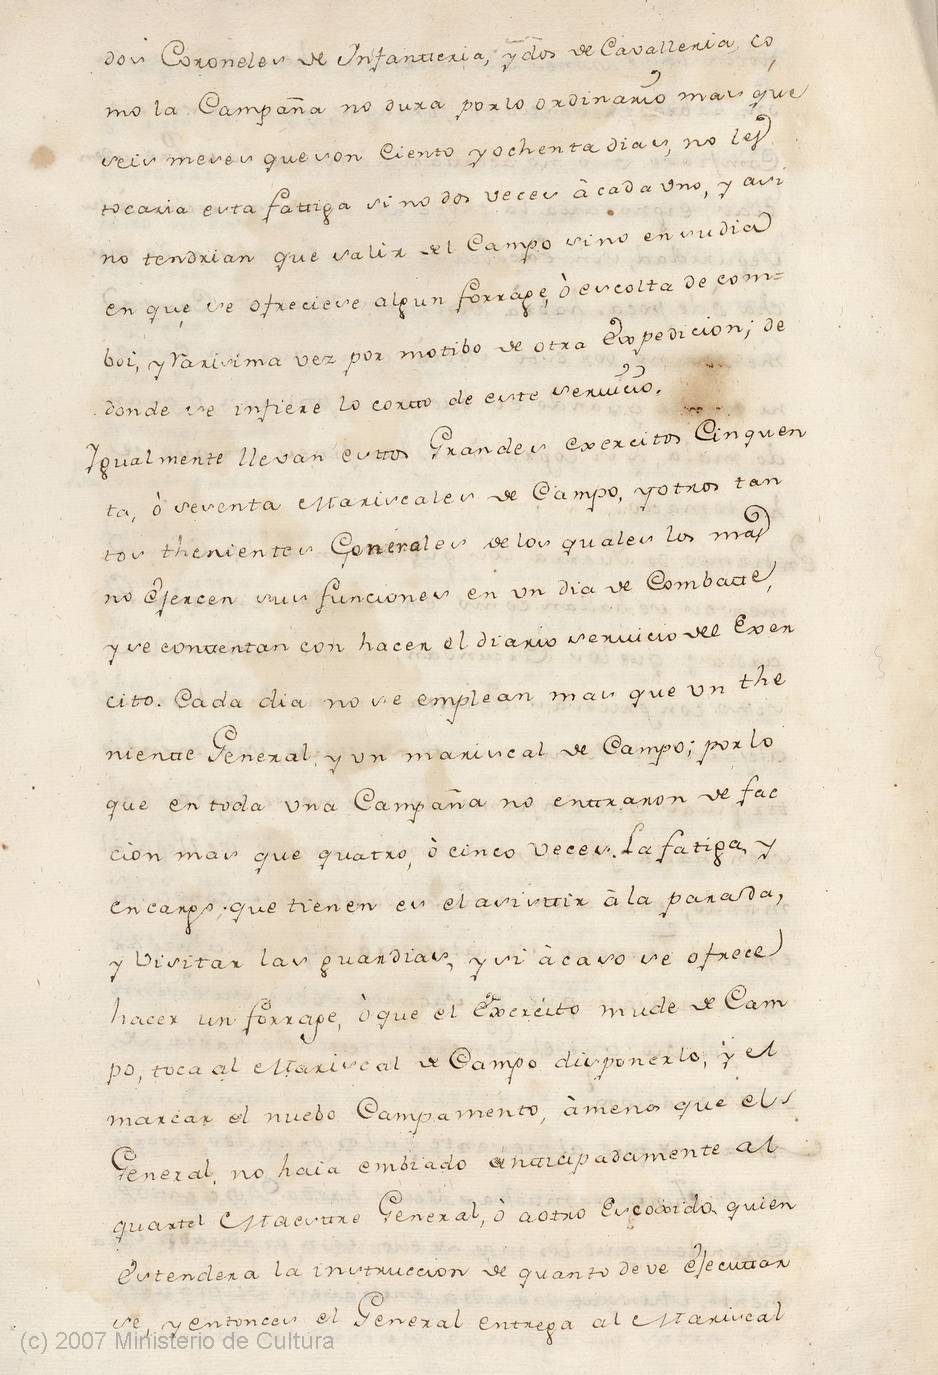 dos Coroneles de Infantteria, y dos de Cavalleria, co
mo la Campaña no dura por lo ordinario mas que
seis meses que son Ciento y ochenta dias, no les
tocaria esta fattiga si no dos veces à cada vno, y asi
no tendrian que salir del Campo sino en su dia
en que se ofreciese algun forrage, ò escolta de com=
boi, y rarisima vez por motibo de otra Expedicion; de
donde se infiere lo cortto de este servicio.
Igualmente llevan esttos Grandes exercitos Cinquen
ta, ò sesenta Mariscales de Campo, y otros tan
tos thenientes Generales de los quales los mas
no Ejercen sus funciones en vn dia de Combatte,
y se conttentan con hacer el diario servicio del Exer
cito. Cada dia no se emplean mas que vn the
niente General, y vn mariscal de Campo; por lo
que en toda vna Campaña no enttraron de fac
cion mas que quatro, ò cinco veces. La fatiga, y
encargo, que tienen es el asisttir à la parada,
y Visitar las guardias, y si àcaso se ofrece
hacer un forrage, ò que el Exercito mude de Cam
po, toca al Mariscal de Campo disponerlo, ÿ el
marcar el nuebo Campamento, àmenos que el
General, no haia embiado anttizipadamente al
quartel Maesttre General, ò a otro Escoxido, quien
estendera la instruccion de quanto deve Ejecuttar
se, y entonces el General entrega al Mariscal
(c) 2007 Ministerio de Cultura